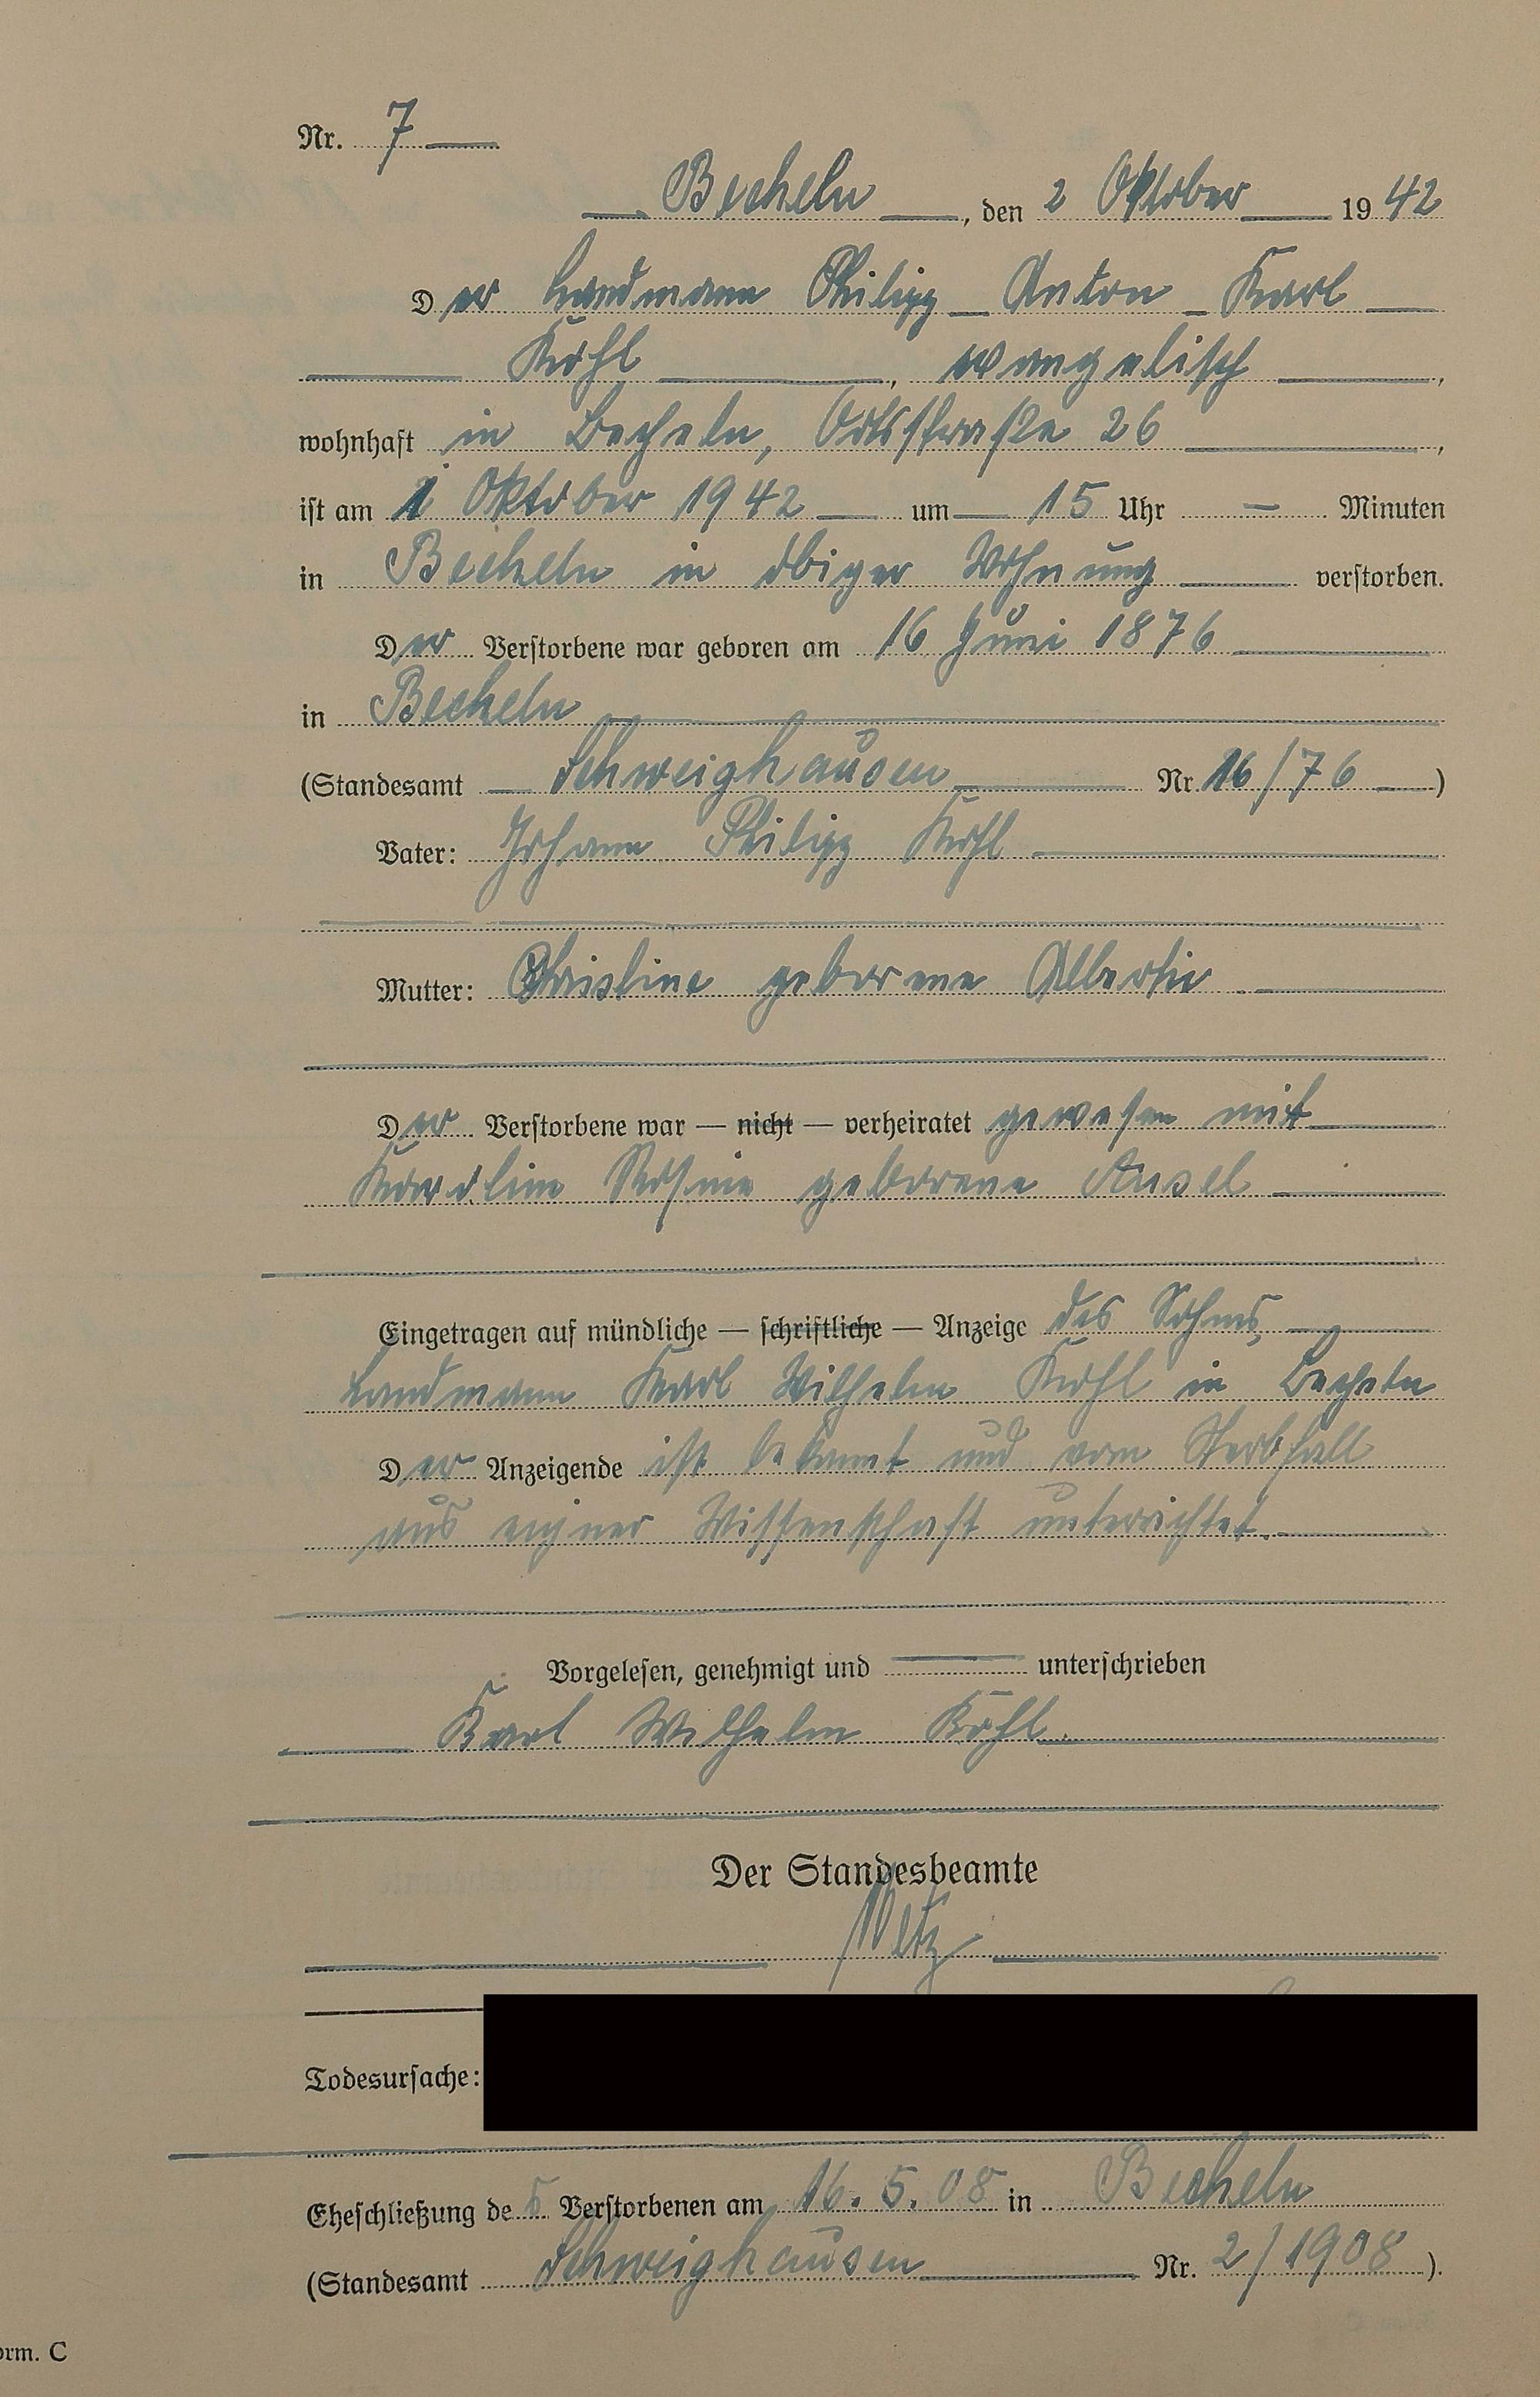 Nr. 7
Becheln, den 2 Oktober 1942
Der Landmann Philipp Anton Karl
Kohl, evangelisch,
wohnhaft in Becheln, Ortsstraße 26,
ist am 1 Oktober 1942 um 15 Uhr — Minuten
in Becheln in obiger Wohnung verstorben.
Der Verstorbene war geboren am 16 Juni 1876
in Becheln
(Standesamt Schweighausen Nr. 16/76)
Vater: Johann Philipp Kohl
Mutter: Christine geborene
Der Verstorbene war — nicht — verheiratet gewesen mit
Karoline Rosine geborene
Eingetragen auf mündliche — schriftliche — Anzeige des Sohnes,
Landmann Karl Wilhelm Kohl in Becheln
Der Anzeigende ist bekannt und vom Sterbfall
aus eigner Wissenschaft unterrichtet.
Vorgelesen, genehmigt und unterschrieben
Karl Wilhelm Kohl.
Der Standesbeamte
Metz
Todesursache:
Eheschließung des Verstorbenen am 16. 5. 08 in Becheln
(Standesamt Schweighausen Nr. 2/1908).
orm. C